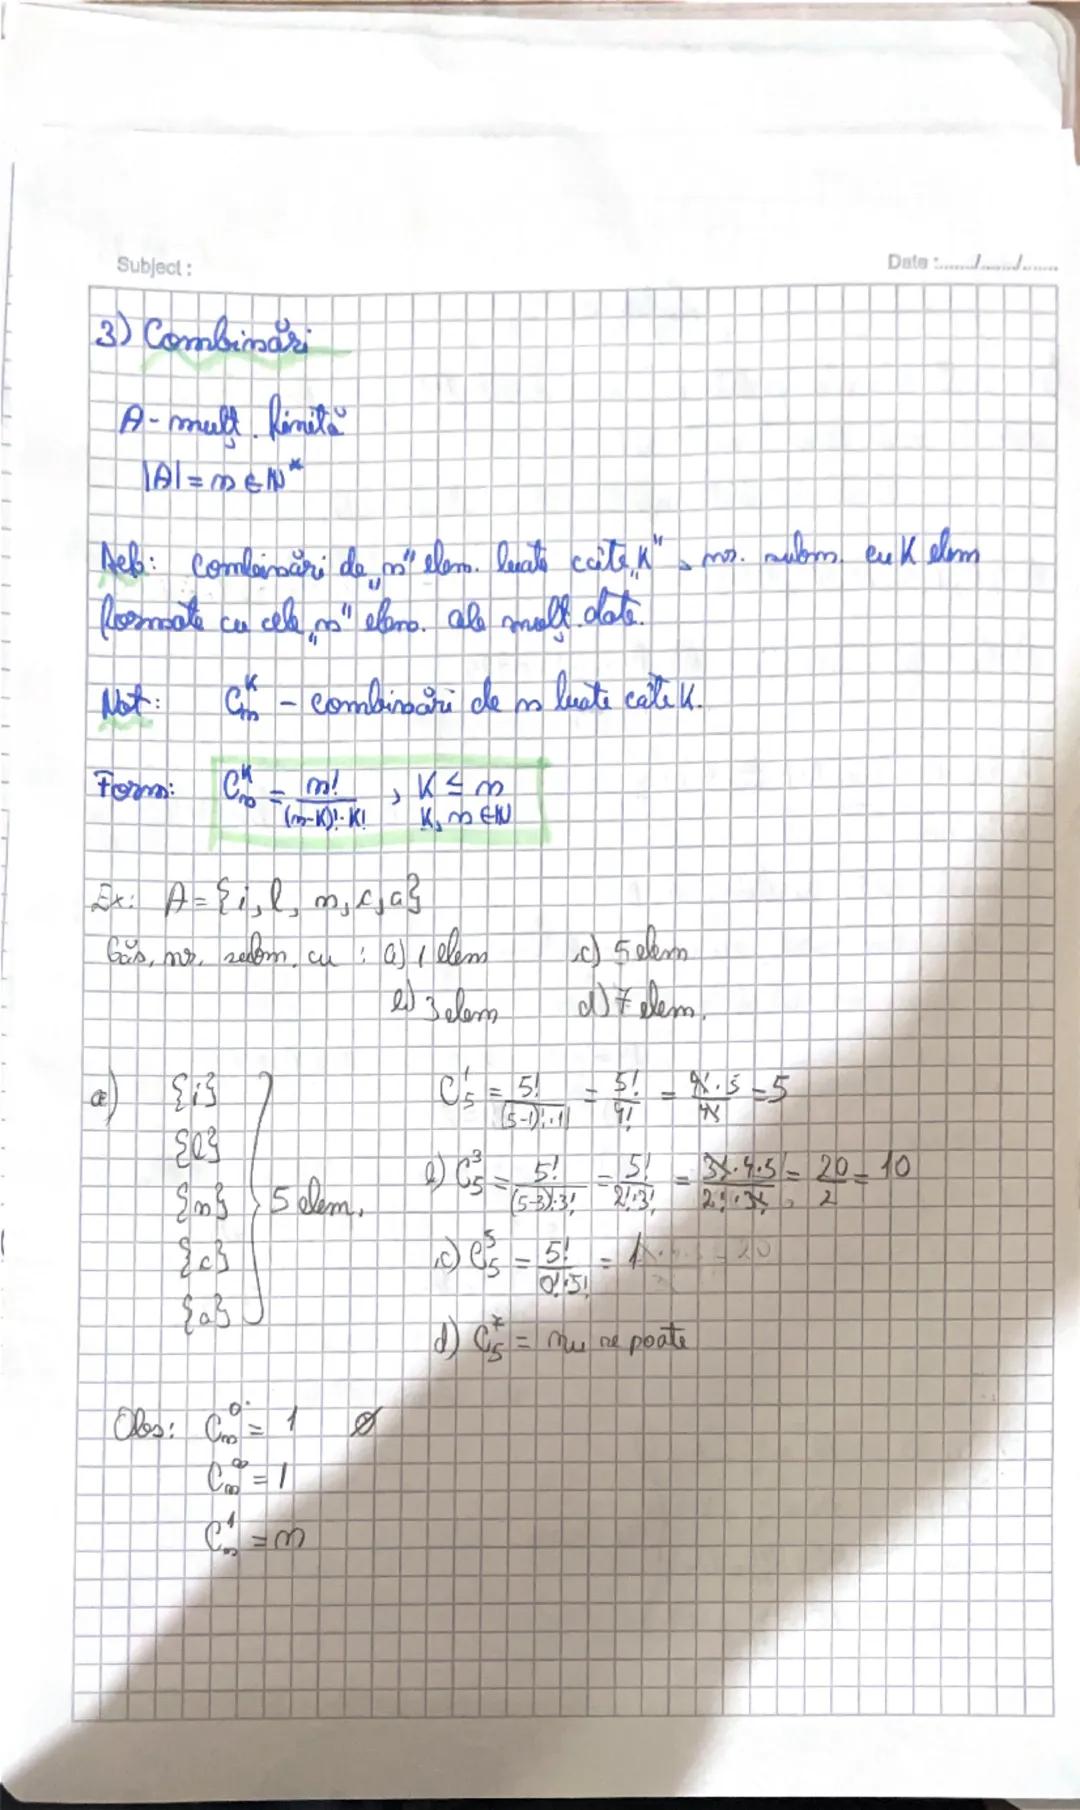 Subject :
Date :......../......../........
3) Combinări
A - mulț. finită
|A| = n ∈ ℕ*
Def: Combinări de „n" elem. luate câte „k" → nr. subm. cu k elem
formate cu cele „n" elem. ale mulț. date.
Not: Cₙᵏ - combinări de n luate câte k.
Form: Cₙᵏ = n!/((n-k)!·k!) , k ≤ n
k, n ∈ ℕ
Ex: A = {i, l, n, c, a}
Găs. nr. subm. cu : a) 1 elem c) 5 elem
b) 3 elem d) 7 elem.
a) {i} C₅¹ = 5!/((5-1)!·1!) = 5!/4! = 4!·5/4! = 5
{l}
{n} } 5 elem. b) C₅³ = 5!/((5-3)!·3!) = 5!/(2!·3!) = 3!·4·5/(2!·3!) = 20/2 = 10
{c} c) C₅⁵ = 5!/(0!·5!) = 1
{a}
d) C₅⁷ = nu se poate
Obs: Cₙ⁰ = 1 ∅
Cₙⁿ = 1
Cₙ¹ = n